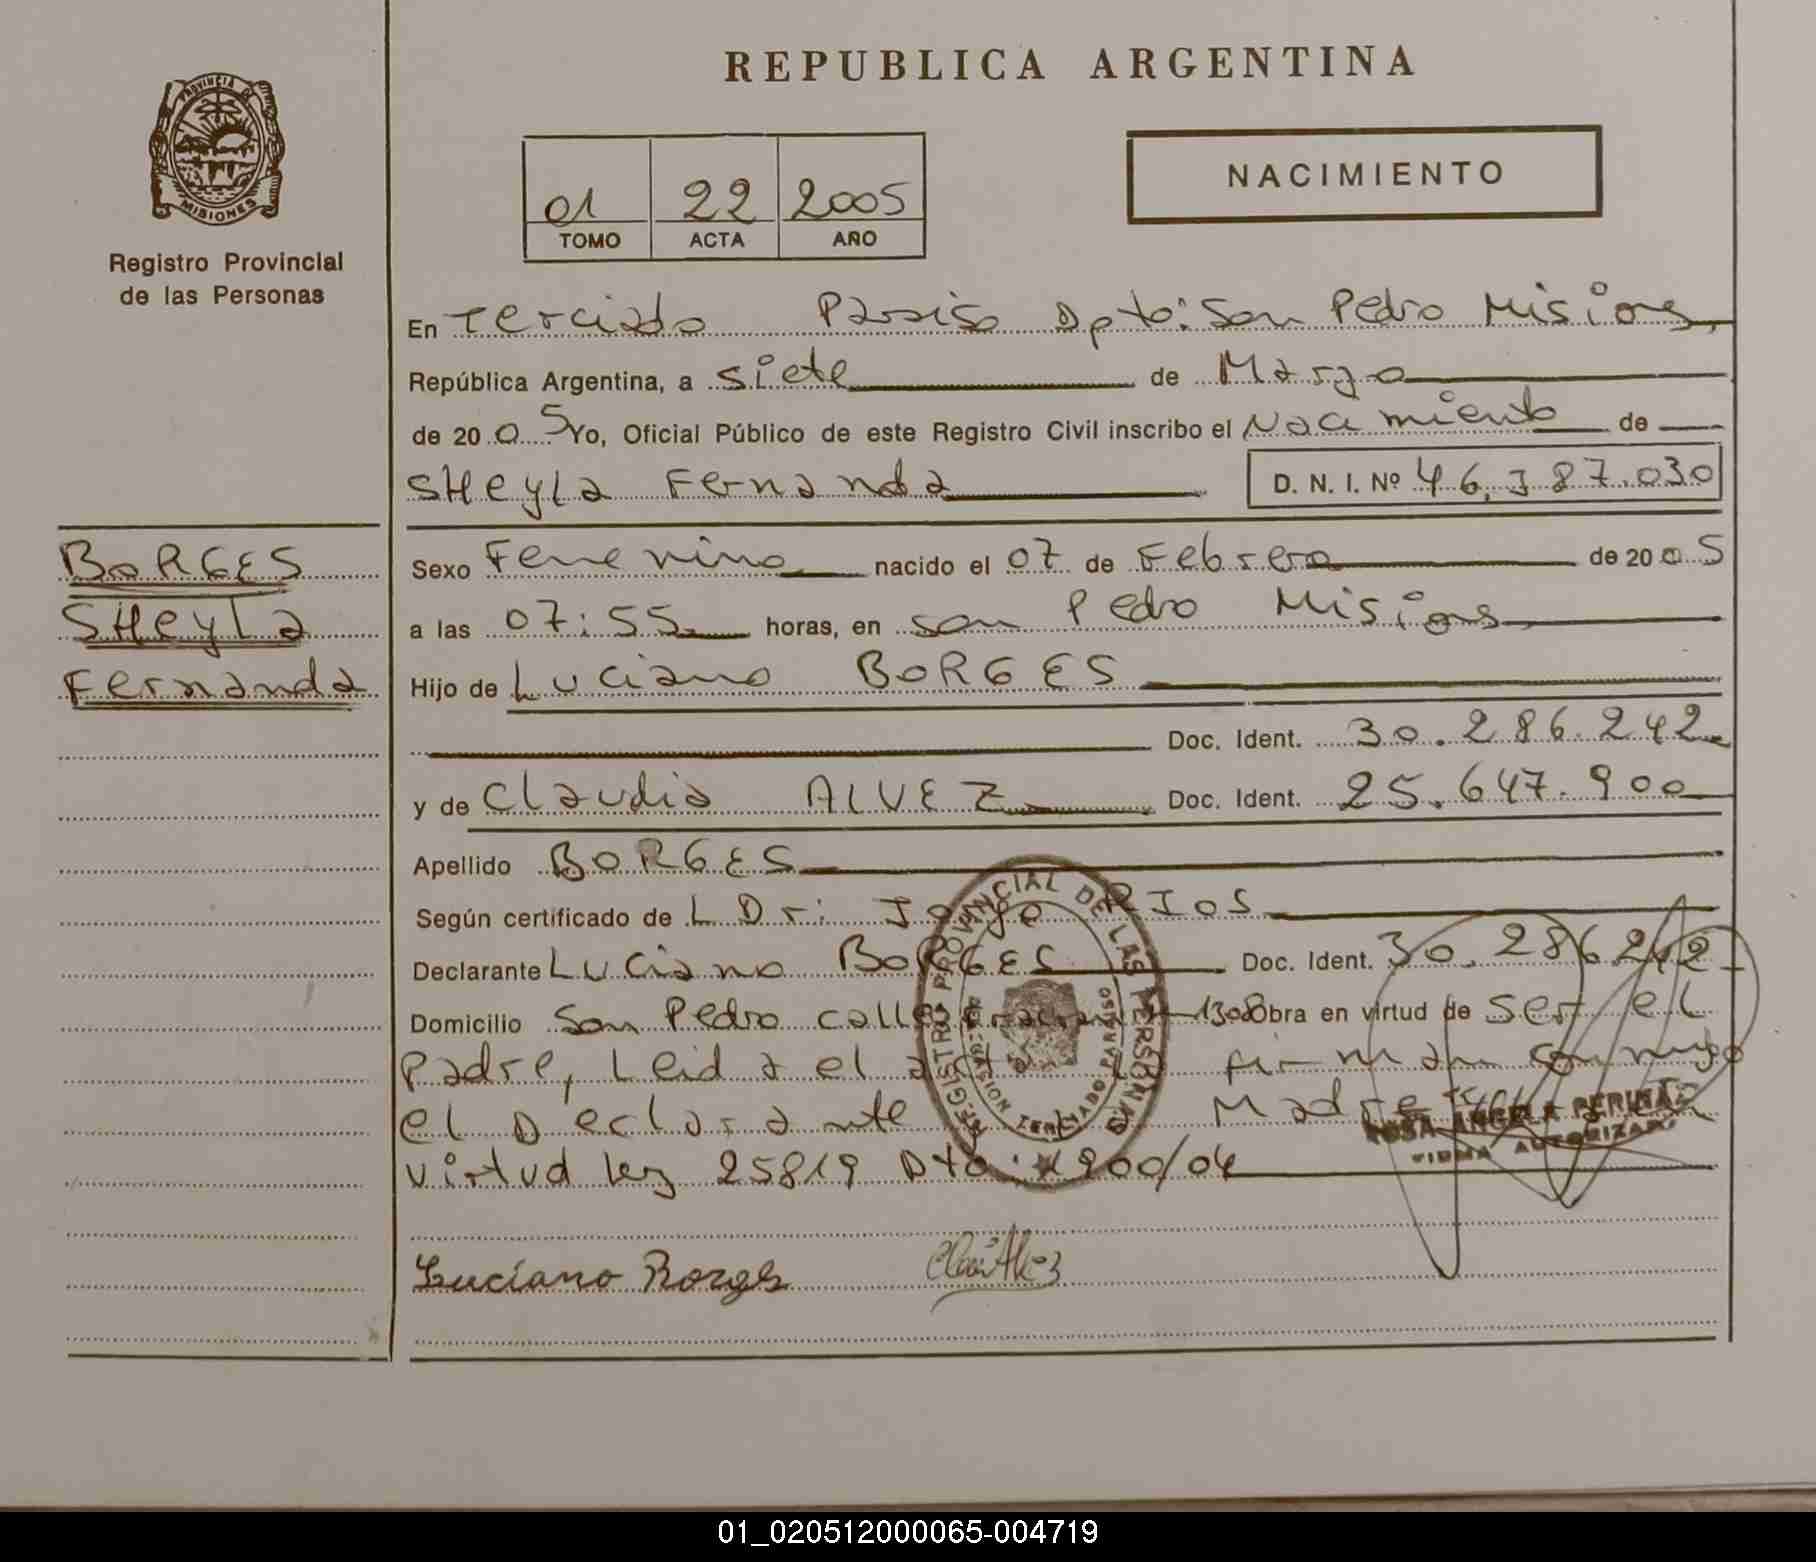 REPUBLICA ARGENTINA
PROVINCIA DE
MISIONES
Registro Provincial
de las Personas
01 22 2005
TOMO ACTA AÑO
NACIMIENTO
En Terciado Paraiso Dpto: San Pedro Misiones,
República Argentina, a siete de Marzo
de 20 05 Yo, Oficial Público de este Registro Civil inscribo el Nacimiento de
SHeyla Fernanda D. N. I. Nº 46.387.030
BORGES
SHeyla
Fernanda
Sexo Femenino nacido el 07 de Febrero de 20 05
a las 07:55 horas, en San Pedro Misiones
Hijo de Luciano BORGES
Doc. Ident. 30.286.242
y de Claudia ALVEZ Doc. Ident. 25.647.900
Apellido BORGES
Según certificado de L Dr: Jorge RIOS
Declarante Luciano BORGES Doc. Ident. 30.286.242
Domicilio San Pedro calle 1308 Obra en virtud de ser el
Padre, Leida el acta firman conmigo
el Declarante Madre
virtud ley 25819 Dto: 1900/04
REGISTRO PROVINCIAL DE LAS PERSONAS
DELEGACION TERCIADO PARAISO
ROSA ANGELA
FIRMA AUTORIZADA
Luciano Borges
01_020512000065-004719